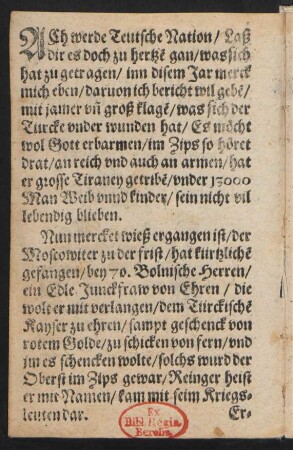 ACh werde Teutsche Nation / Laß
dir es doch zu hertzē gan / was sich
hat zu getragen / inn disem Jar merck
mich eben / daruon ich bericht wil gebē /
mit jamer vñ groß klagē / was sich der
Türcke vnder wunden hat / Es möcht
wol Gott erbarmen / im Zips so höret
drat / an reich vnd auch an armen / hat
er grosse Tiraney getribē / vnder 13000
Man Weib vnnd kinder / sein nicht vil
lebendig blieben.
Nun mercket wieß ergangen ist / der
Moscowiter zu der frist / hat kürtzlichē
gefangen / bey 70. Polnische Herren /
ein Edle Junckfraw von Ehren / die
wolt er mit verlangen / dem Türckischē
Kayser zu ehren / sampt geschenck von
rotem Golde / zu schicken von fern / vnd
jm es schencken wolte / solchs wurd der
Oberst im Zips gewar / Reinger heist
er mit Namen / kam mit seim Kriegs-
leuten dar.
Er-
Ex
Bibl. Regia
Berolin.